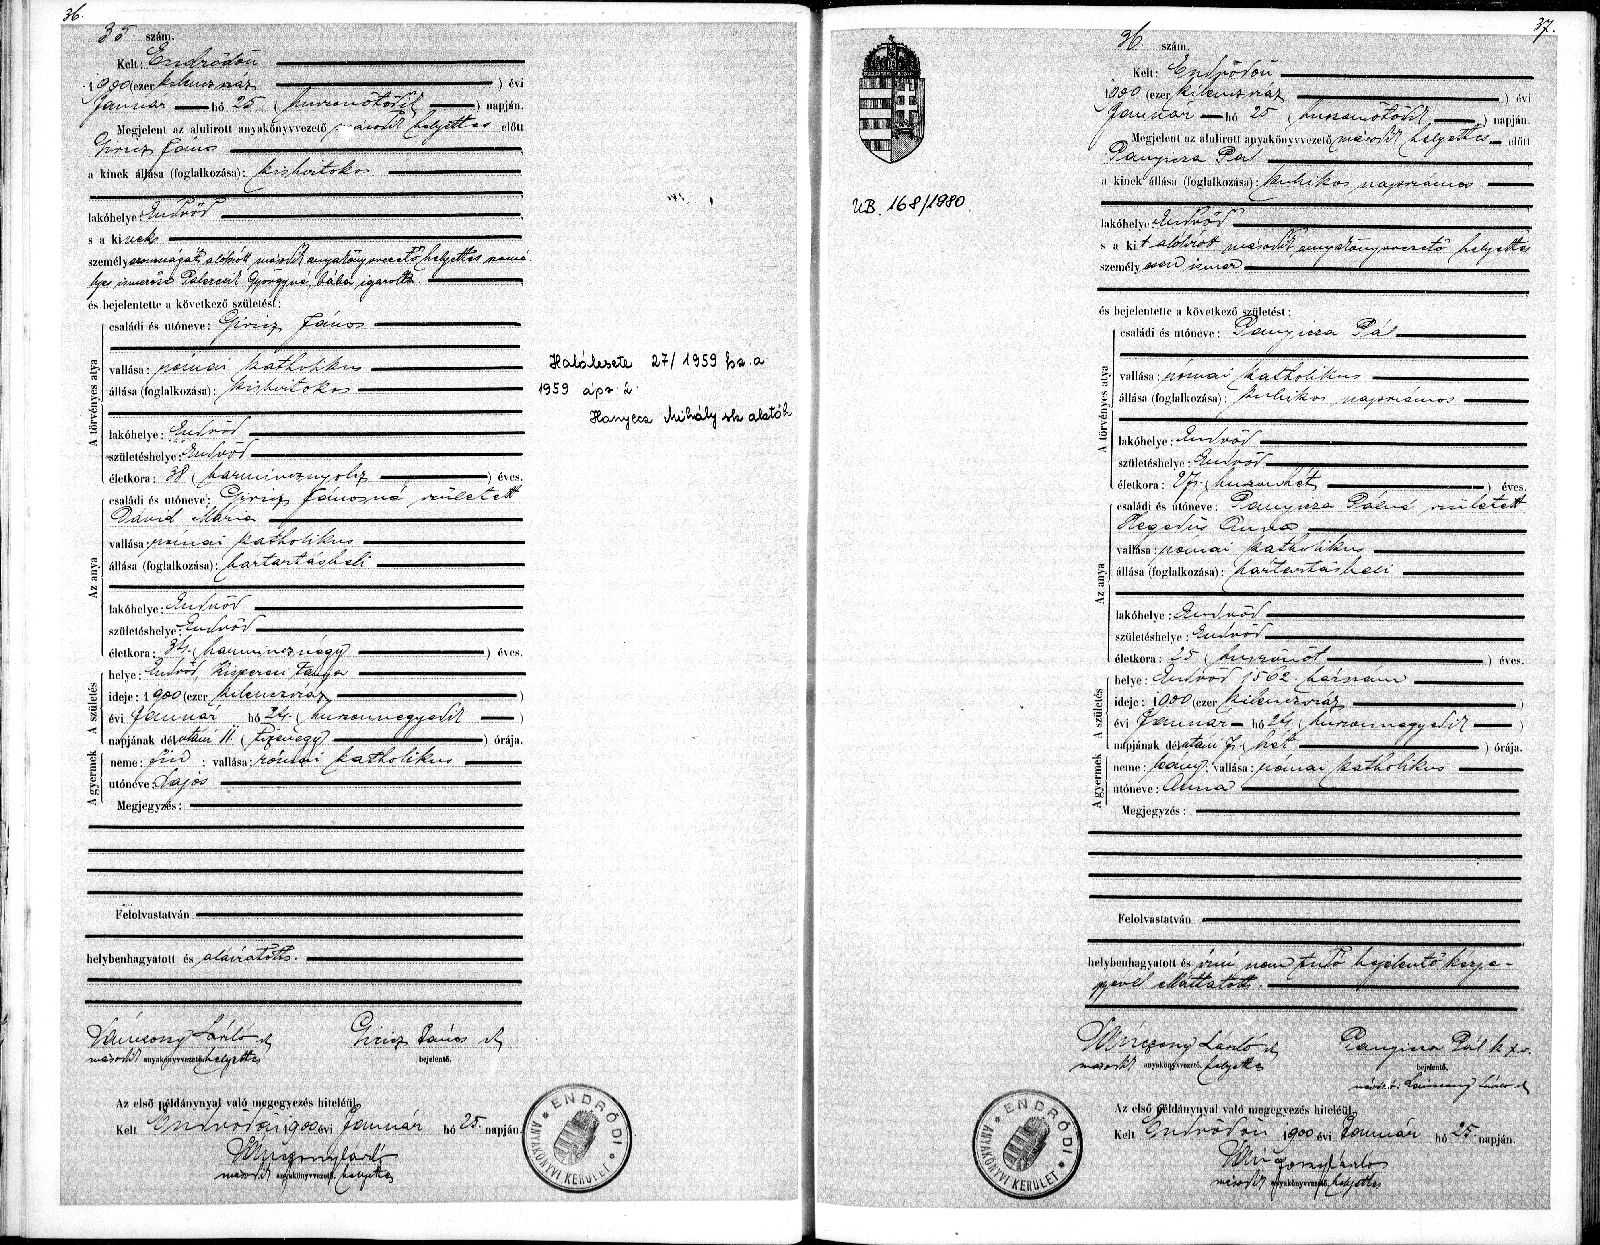 36.
35 szám.
Kelt: Endrődön
1900 (ezer kilenczszáz) évi
Január hó 25 (huszonötödik) napján.
Megjelent az alulirott anyakönyvvezető második helyettes előtt
Giricz János
a kinek állása (foglalkozása): kisbirtokos
lakóhelye: Endrőd
s a kinek
személyazonosságát alólirott második anyakönyvvezető helyettes szemé
lyes ismerőse Györgyné, bába igazolta
és bejelentette a következő születést:
A törvényes atya
családi és utóneve: Giricz János
vallása: római katholikus
állása (foglalkozása): kisbirtokos
lakóhelye: Endrőd
születéshelye: Endrőd
életkora: 38 (harmincznyolcz) éves.
Az anya
családi és utóneve: Giricz Jánosné született
Dávid Mária
vallása: római katholikus
állása (foglalkozása): háztartásbeli
lakóhelye: Endrőd
születéshelye: Endrőd
életkora: 34. (harmincznégy) éves.
A születés
helye: Endrőd, tanya
ideje: 1900 (ezer kilenczszáz)
évi Január hó 24. (huszonnegyedik)
napjának délutáni 11 (tizenegy) órája.
A gyermek
neme: fiú : vallása: római katholikus
utóneve: Lajos
Megjegyzés:
Felolvastatván
helybenhagyatott és aláiratott.
László sk
második anyakönyvvezető helyettes
Giricz János sk
bejelentő.
Az első példánynyal való megegyezés hiteléül,
Kelt Endrődön 1900 évi Január hó 25. napján.
második anyakönyvvezető. helyettes
ENDRŐDI ANYAKÖNYVI KERÜLET
Halálesete 27/1959 fsz. a
1959 ápr 2.
Hanyecz Mihály sk alatók
37.
36 szám.
Kelt: Endrődön
1900 (ezer kilenczszáz) évi
Január hó 25 (huszonötödik) napján.
Megjelent az alulirott anyakönyvvezető második helyettes előtt
Panyicza Pál
a kinek állása (foglalkozása): kubikos napszámos
lakóhelye: Endrőd
s a kit alólirott második anyakönyvvezető helyettes
személyesen ismer
és bejelentette a következő születést:
A törvényes atya
családi és utóneve: Panyicza Pál
vallása: római katholikus
állása (foglalkozása): kubikos napszámos
lakóhelye: Endrőd
születéshelye: Endrőd
életkora: 27. (huszonhét) éves.
Az anya
családi és utóneve: Panyicza Pálné született
Hegedűs Anna
vallása: római katholikus
állása (foglalkozása): háztartásbeli
lakóhelye: Endrőd
születéshelye: Endrőd
életkora: 25 (huszonöt) éves.
A születés
helye: Endrőd 1502. házszám
ideje: 1900 (ezer kilenczszáz)
évi Január hó 24. (huszonnegyedik)
napjának délutáni 7. (hét) órája.
A gyermek
neme: leány: vallása: római katholikus
utóneve: Anna
Megjegyzés:
Felolvastatván
helybenhagyatott és írni nem tudó bejelentő kézje-
gyével elláttatott.
László sk
második anyakönyvvezető. helyettes
Panyicza Pál k
bejelentő.
Az első példánynyal való megegyezés hiteléül,
Kelt Endrődön 1900 évi Január hó 25. napján.
második anyakönyvvezető helyettes
ENDRŐDI ANYAKÖNYVI KERÜLET
UB. 168/1980